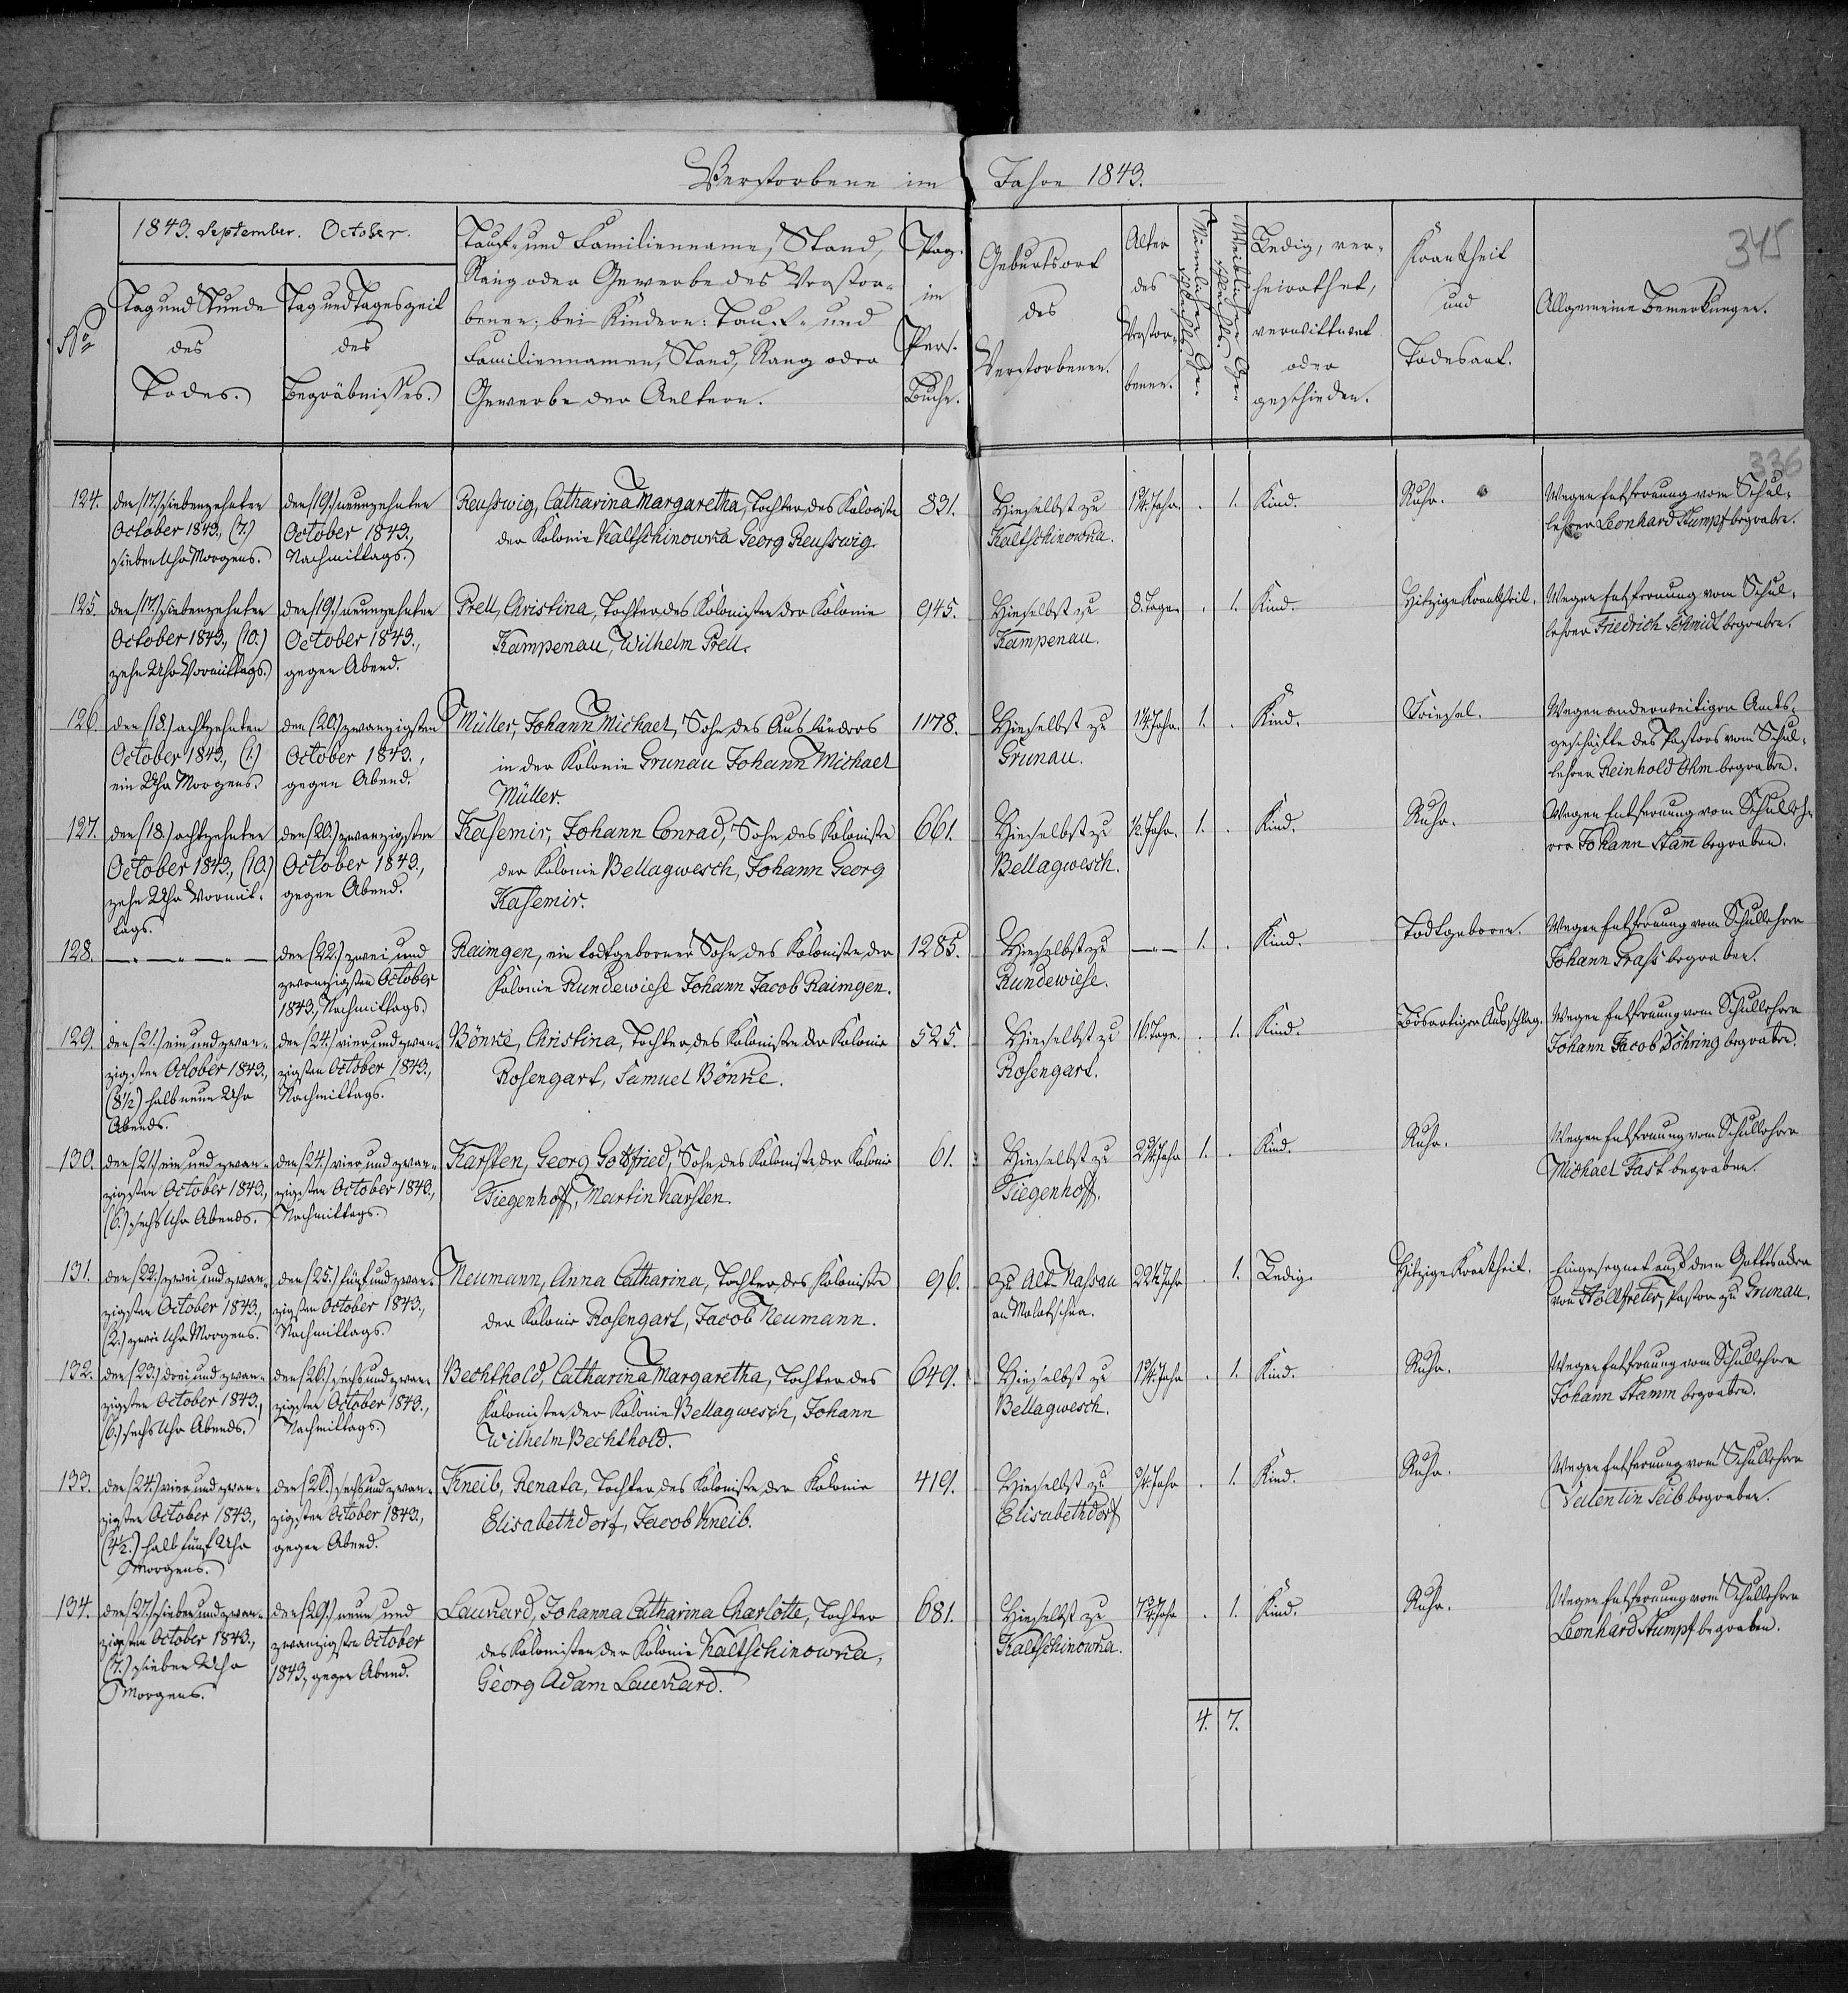 Verstorbene im Jahre 1843.
345
336
No
1843. September. October.
Tag und Stunde
des
Todes.
Tag und Tageszeit
des
Begräbnisses.
Tauf- und Familienname, Stand,
Rang oder Gewerbe des Verstor-
benen; bei Kindern: Tauf- und
Familiennamen, Stand, Rang oder
Gewerbe der Aeltern.
Pag.
im
Pers.
Buche.
Geburtsort
des
Verstorbenen.
Alter
des
Verstor-
benen.
Männlichen Ge-
schlechts.
Weiblichen Ge-
schlechts.
Ledig, ver-
heirathet,
verwittwet
oder
geschieden.
Krankheit
und
Todesart.
Allgemeine Bemerkungen.
124.
den (17.) siebenzehnten
October 1843., (7.)
sieben Uhr Morgens.
den (19.) neunzehnten
October 1843.,
Nachmittags.
Reußwig, Catharina Margaretha, Tochter des Koloniste
der Kolonie Kaltschinowka Georg Reußwig.
831.
Hieselbst zu
Kaltschinowka.
1¾. Jahr.
.
1.
Kind.
Ruhr.
Wegen Entfernung vom Schul-
lehrer Leonhard Stumpf begraben.
125.
den (17.) siebenzehnten
October 1843., (10.)
zehn Uhr Vormittags.
den (19.) neunzehnten
October 1843.,
gegen Abend.
Prell, Christina, Tochter des Kolonisten der Kolonie
Kampenau, Wilhelm Prell.
945.
Hieselbst zu
Kampenau.
8. Tage.
.
1.
Kind.
Hitzige Krankheit.
Wegen Entfernung vom Schul-
lehrer Friedrich Schmidt begraben.
126.
den (18.) achtzehnten
October 1843., (1.)
ein Uhr Morgens.
den (20.) zwanzigsten
October 1843.,
gegen Abend.
Müller, Johann Michael, Sohn des Ausländers
in der Kolonie Grunau Johann Michael
Müller.
1178.
Hieselbst zu
Grunau.
1¼. Jahr.
1.
.
Kind.
Friesel.
Wegen anderweitiger Amts-
geschäfte des Pastors vom Schul-
lehrer Reinhold Ohm begraben.
127.
den (18.) achtzehnten
October 1843., (10.)
zehn Uhr Vormit-
tags.
den (20.) zwanzigsten
October 1843.,
gegen Abend.
Kasemir, Johann Conrad, Sohn des Koloniste
der Kolonie Bellagwesch, Johann Georg
Kasemir.
661.
Hieselbst zu
Bellagwesch.
½. Jahr.
1.
.
Kind.
Ruhr.
Wegen Entfernung vom Schulleh-
rer Johann Stam begraben.
128.
den (22.) zwei und
zwanzigsten October
1843., Nachmittags.
Raimgen, ein todtgeborner Sohn des Koloniste der
Kolonie Rundewiese Johann Jacob Raimgen.
1285.
Hieselbst zu
Rundewiese.
1.
.
Kind.
Todtgeboren.
Wegen Entfernung vom Schullehrer
Johann begraben.
129.
den (21.) ein und zwan-
zigsten October 1843.,
(8½) halb neun Uhr
Abends.
den (24.) vier und zwan-
zigsten October 1843.,
Nachmittags.
Bönke, Christina, Tochter des Koloniste der Kolonie
Rosengart, Samuel Bönke.
525.
Hieselbst zu
Rosengart.
16. Tage.
.
1.
Kind.
Bösartiger Ausschlag.
Wegen Entfernung vom Schullehrer
Johann Jacob Döhring begraben.
130.
den (21.) ein und zwan-
zigsten October 1843.,
(6.) sechs Uhr Abends.
den (24.) vier und zwan-
zigsten October 1843.,
Nachmittags.
Karsten, Georg Gottfried, Sohn des Koloniste der Kolonie
Tiegenhoff, Martin Karsten.
61.
Hieselbst zu
Tiegenhoff.
2¾. Jahr
1.
.
Kind.
Ruhr.
Wegen Entfernung vom Schullehrer
Michael Fast begraben.
131.
den (22.) zwei und zwan-
zigsten October 1843.,
(2.) zwei Uhr Morgens.
den (25.) fünf und zwan-
zigsten October 1843.,
Nachmittags.
Neumann, Anna Catharina, Tochter des Koloniste
der Kolonie Rosengart, Jacob Neumann.
96.
Zu Alt-Nassau
an Molotschna.
22½ Jahr
.
1.
Ledig.
Hitzige Krankheit.
Eingesegnet auf dem Gottesacker
von Höllfreter, Pastor zu Grunau.
132.
den (23.) drei und zwan-
zigsten October 1843.,
(6.) sechs Uhr Abends.
den (26.) sechs und zwan-
zigsten October 1843.,
Nachmittags.
Bechthold, Catharina Margaretha, Tochter des
Kolonisten der Kolonie Bellagwesch, Johann
Wilhelm Bechthold.
649.
Hieselbst zu
Bellagwesch.
1¾. Jahr
.
1.
Kind.
Ruhr.
Wegen Entfernung vom Schullehrer
Johann Stamm begraben.
133.
den (24.) vier und zwan-
zigsten October 1843.,
(4½.) halb fünf Uhr
Morgens.
den (26.) sechs und zwan-
zigsten October 1843.,
gegen Abend.
Kneib, Renata, Tochter des Koloniste der Kolonie
Elisabethdorf, Jacob Kneib.
419.
Hieselbst zu
Elisabethdorf
¾. Jahr
.
1.
Kind.
Ruhr.
Wegen Entfernung vom Schullehrer
Valentin Seib begraben.
134.
den (27.) sieben und zwan-
zigsten October 1843.,
(7.) sieben Uhr
Morgens.
den (29.) neun und
zwanzigsten October
1843, gegen Abend.
Laukard, Johanna Catharina Charlotte, Tochter
des Kolonisten der Kolonie Kaltschinowka,
Georg Adam Laukard.
681.
Hieselbst zu
Kaltschinowka.
7¾. Jahr
.
1.
Kind.
Ruhr.
Wegen Entfernung vom Schullehrer
Leonhard Stumpf begraben.
4. 7.